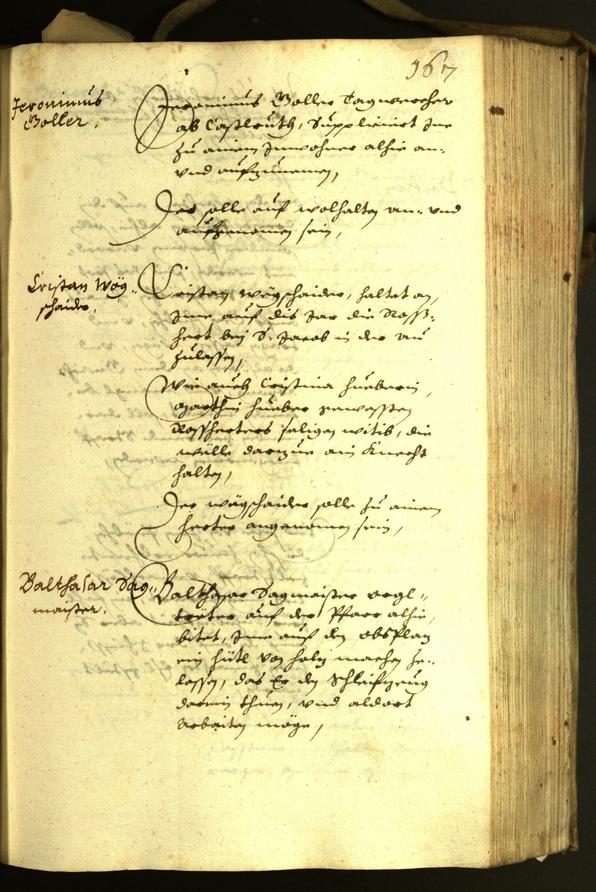 167
Jeronimus
Goller.
Jeronimus Goller Tagwercher
ab Casslruth, Supplicirt Ine
zu ainem Inwohner alhie an-
und aufzunemen,
Der solle auf wolhalten an- und
aufgenomen sein,
Cristan Wög-
schaider.
Cristan Wögschaider, haltet an,
Ine auf dis Jar die Ross-
hert bej S. Jacob in der au
zulassen,
Wie auch Cristina Hueberin,
Marthin Hueber gewesten
Rossherters seligen witib, die
wölle darzue ain Knecht
halten,
Der Wögschaider solle zu ainem
herter angenomen sein,
Balthasar Dag-
maister.
Balthasar Dagmaister orgl-
treter auf der Pfarr alhie,
bitet, Ime auf den obsplaz
ein hütl von holz machen ze-
lassen, das Er den Schleifzeug
darein thuen, und aldort
arbaiten möge,